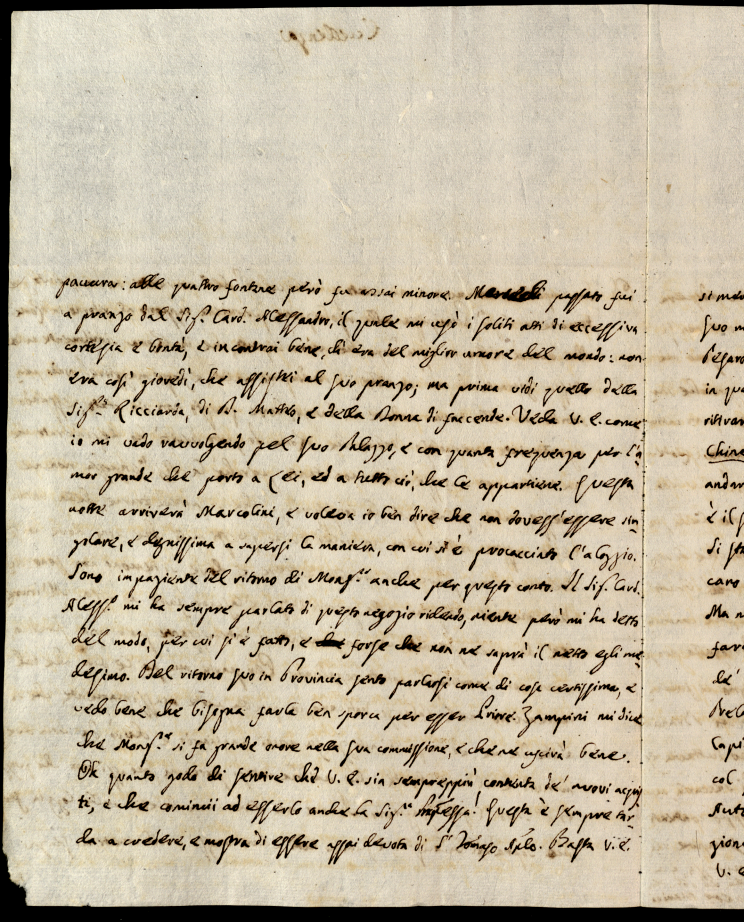 paura: alle quattro fontane però fu assai minore. Mercoldì passato fui
a pranzo dal Sig.r Card. Alessandro, il quale mi usò i soliti atti di eccessiva
cortesia e bontà, e incontrai bene, ch'era del miglior umore del mondo: non
era così giovedì, che assistei al suo pranzo; ma prima vidi quello della
Sig.ra Ricciarda, di B. Matteo, e della Donna di faccende. Veda V. E. come
io mi vado ravvolgendo pel suo Palazzo, e con quanta frequenza per l'a-
mor grande che porto a Lei, ed a tutto ciò, che le appartiene. Questa
notte arriverà Marcolini, e voleva io ben dire che non dovess'essere sin-
golare, e degnissima a sapersi la maniera, con cui si è procacciato l'aloggio.
Sono impaziente del ritorno di Mons.r anche per questo conto. Il Sig. Card.
Aless.o mi ha sempre parlato di questo negozio ridendo, niente però mi ha detto
del modo, per cui si è fatto, e forse che non ne saprà il netto egli me-
desimo. Del ritorno suo in Provincia sento parlarsi come di cosa certissima, e
vedo bene che bisogna farla ben sporca per esser Zampini mi dice
che Mons.r si fa grande onore nella sua commissione, e che ne uscirà bene.
Oh quanto godo di sentire che V. E. sia semprepppiù contenta de' nuovi acqui-
ti, e che cominci ad esserlo anche la Sig.ra Questa è sempre tar-
da a credere, e mostra di essere assai devota di S. Tomaso Aplo. Basta V. E.
si med
suo m
in qu
ritirar
Chine
andar
è il s
di st
caro
Ma n
fare
de'
Capi
col
Auto
zione
V. E